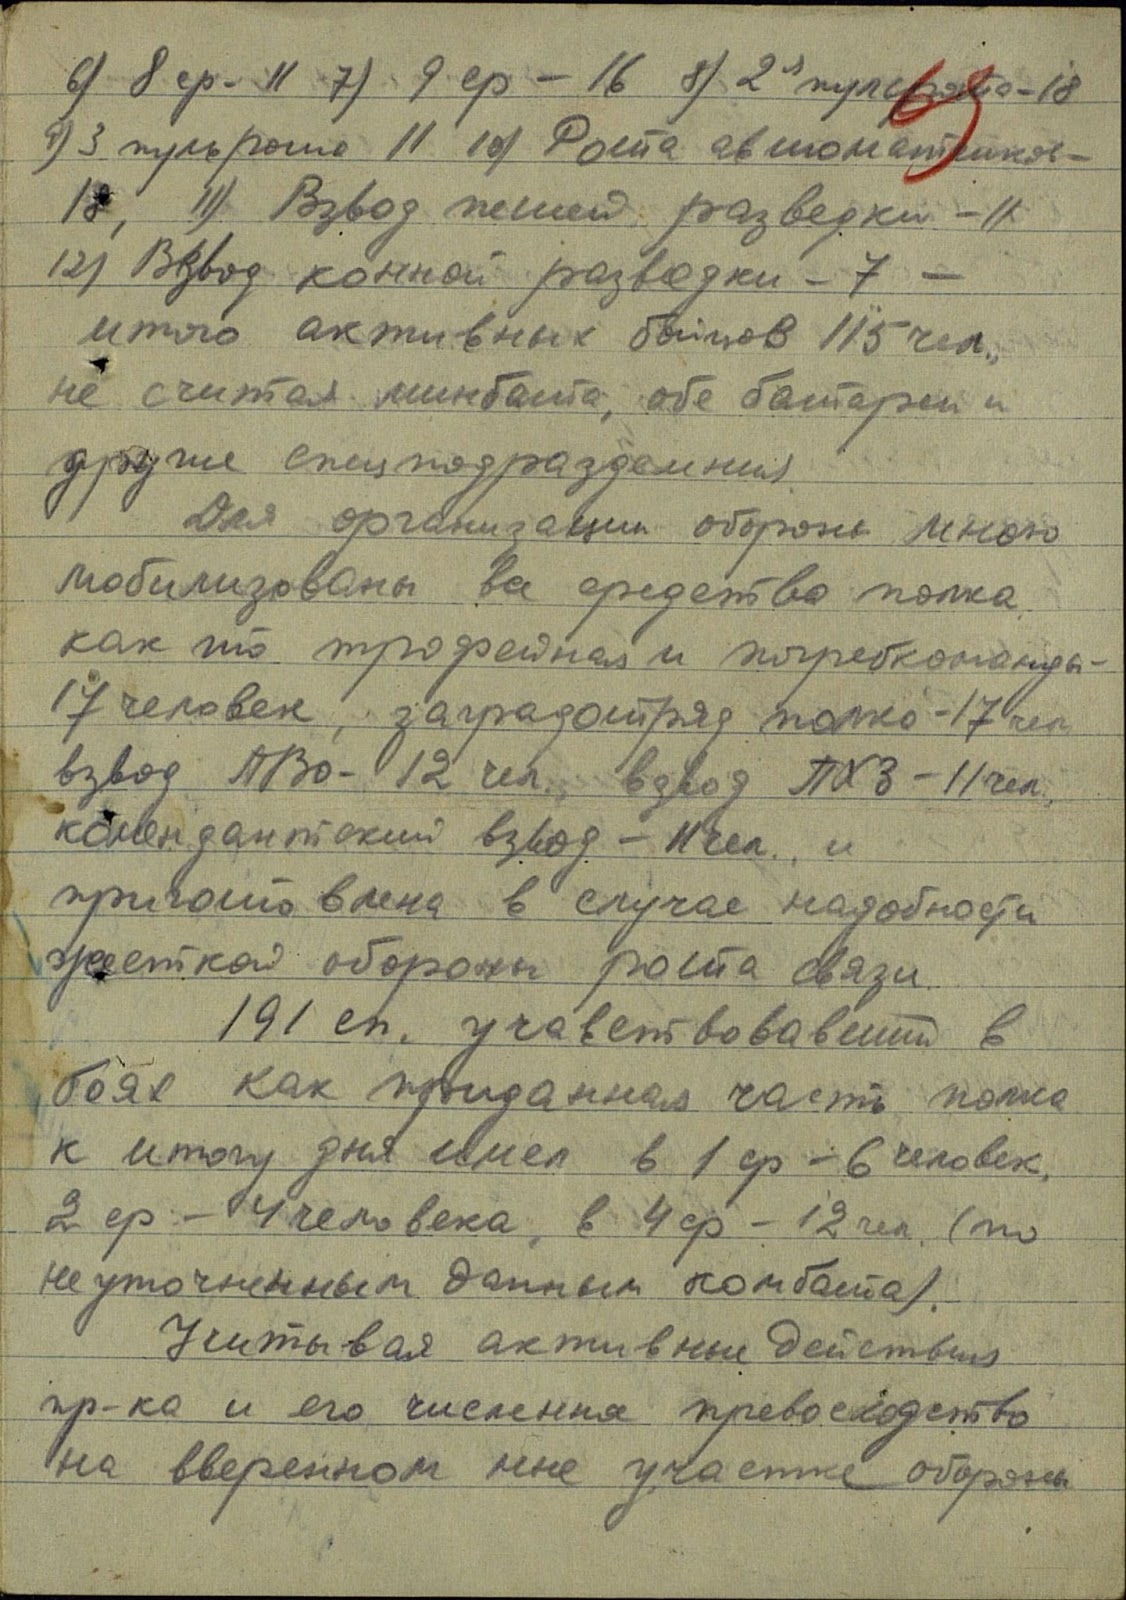 6) 8 ср - 11 7) 9 ср - 16 8) 2я пульрота - 18
9) 3 пульрота 11 10) Рота автоматчиков -
18, 11) Взвод пешей разведки - 11
12) Взвод конной разведки - 7 -
итого активных бойцов 115 чел.,
не считая минбата, обе батареи и
другие спецподразделения.
Для организации обороны мною
мобилизованы все средства полка
как то трофейная и погребкоманды -
17 человек, заградотряд полка - 17 чел
взвод ПВО - 12 чел., взвод ПХЗ - 11 чел.,
комендантский взвод - 11 чел., и
приготовлена в случае надобности
жесткой обороны рота связи.
191 сп. учавствовавший в
боях как приданная часть полка
к итогу дня имел в 1 ср - 6 человек,
2 ср - 4 человека, в 4 ср - 12 чел. (по
неуточненным данным комбата).
Учитывая активные действия
пр-ка и его численное превосходство
на вверенном мне участке обороны